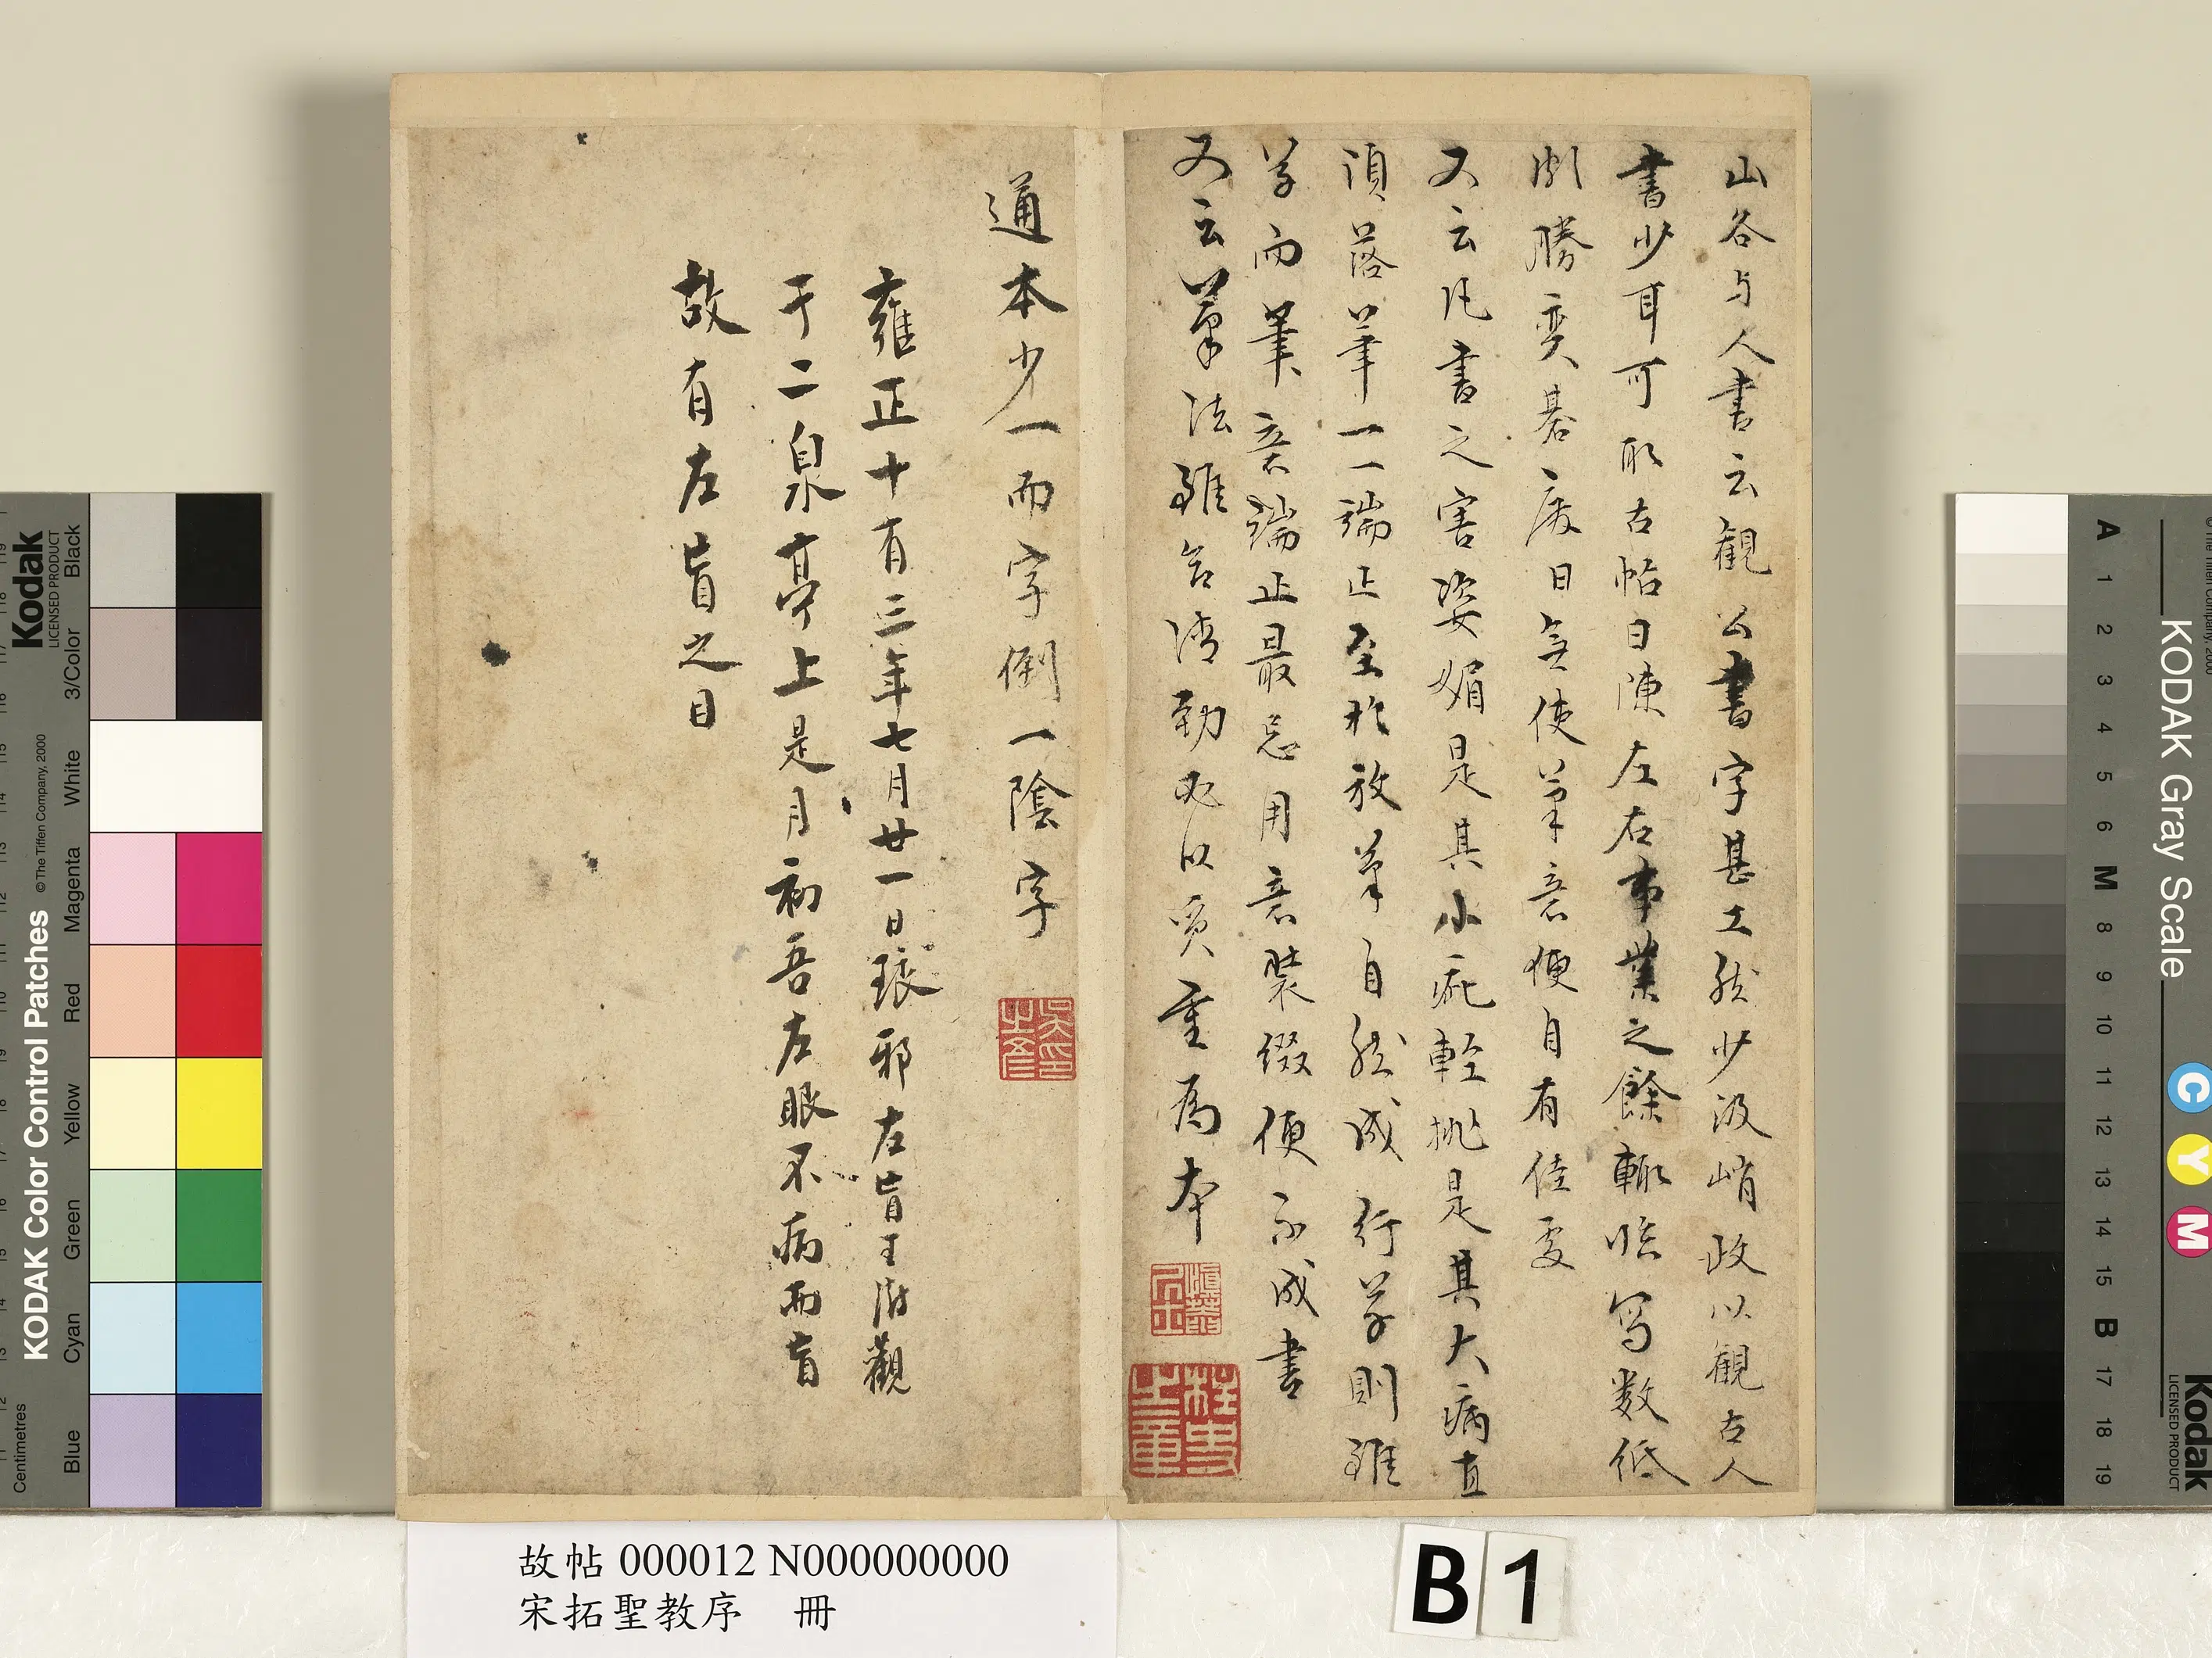 山谷与人書云觀公書字甚工然少波峭政以觀古人
書少耳可取古帖日陳左右事業之餘輒臨写数紙
頗勝奕碁廢日無使筆意便自有佳處
又云凡書之害姿媚是其小疵輕挑是其大病直
須落筆一一端正至於放筆自然成行草則雖
草而筆意端正最忌用意裝綴便不成書
又云筆法雖欲清勁必以質重為本
通本少一而字倒一陰字
雍正十有三年七月廿一日琅邪左盲王澍觀
于二泉亭上是月初吾左眼不病而盲
故有左盲之目
故帖 000012 N000000000
宋拓聖教序 冊
B 1
KODAK Color Control Patches
©The Tiffen Company, 2000
Kodak
LICENSED PRODUCT
Centimetres
Blue
Cyan
Green
Yellow
Red
Magenta
White
3/Color
Black
KODAK Gray Scale
Kodak
LICENSED PRODUCT
A 1 2 3 4 5 6 M 8 9 10 11 12 13 14 15 B 17 18 19
C Y M